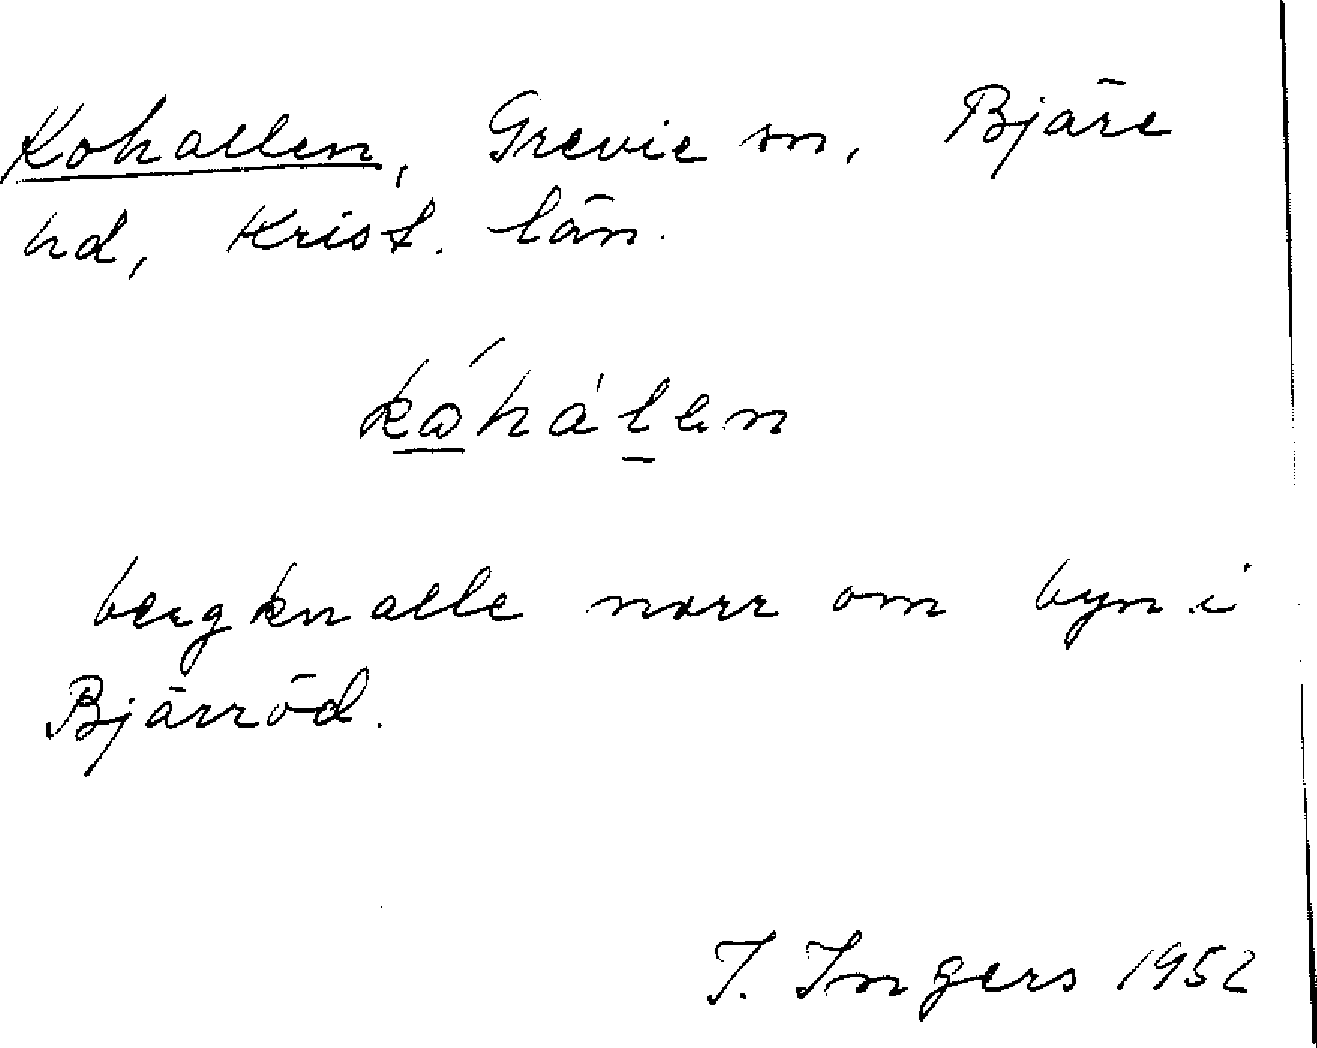 Kohallen, Grevie sn, Bjäre
hd, Krist. län.
kåhàlen
bergknalle norr om byn i
Bjärröd.
I. Ingers 1952